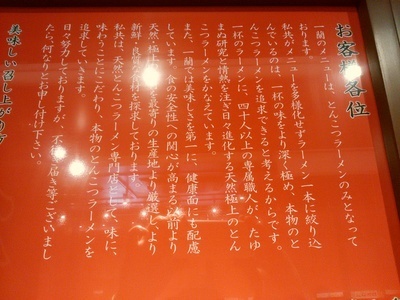 お客様各位
一蘭のメニューは、とんこつラーメンのみとなって
おります。
私共がメニューを多様化せずラーメン一本に絞り込
んでいるのは、一杯の味をより深く極め、本物のと
んこつラーメンを追求できると考えるからです。
一杯のラーメンに、四十人以上の専属職人が、たゆ
まぬ研究と情熱を注ぎ日々進化する天然極上のとん
こつラーメンをかなえています。
また、一蘭では美味しさを第一に、健康面にも配慮
しています。食の安全性への関心が高まる以前より
天然、極上の を最寄りの生産地より厳選し、より
新鮮・良質な食材を探求しております。
私共は、天然とんこつラーメン専門店として、味に、
味わうことにこだわり、本物のとんこつラーメンを
追求していきます。
日々努力しておりますが、不行き届き等ございまし
たら、何なりとお申し付け下さい。
美味しい召し上がり方